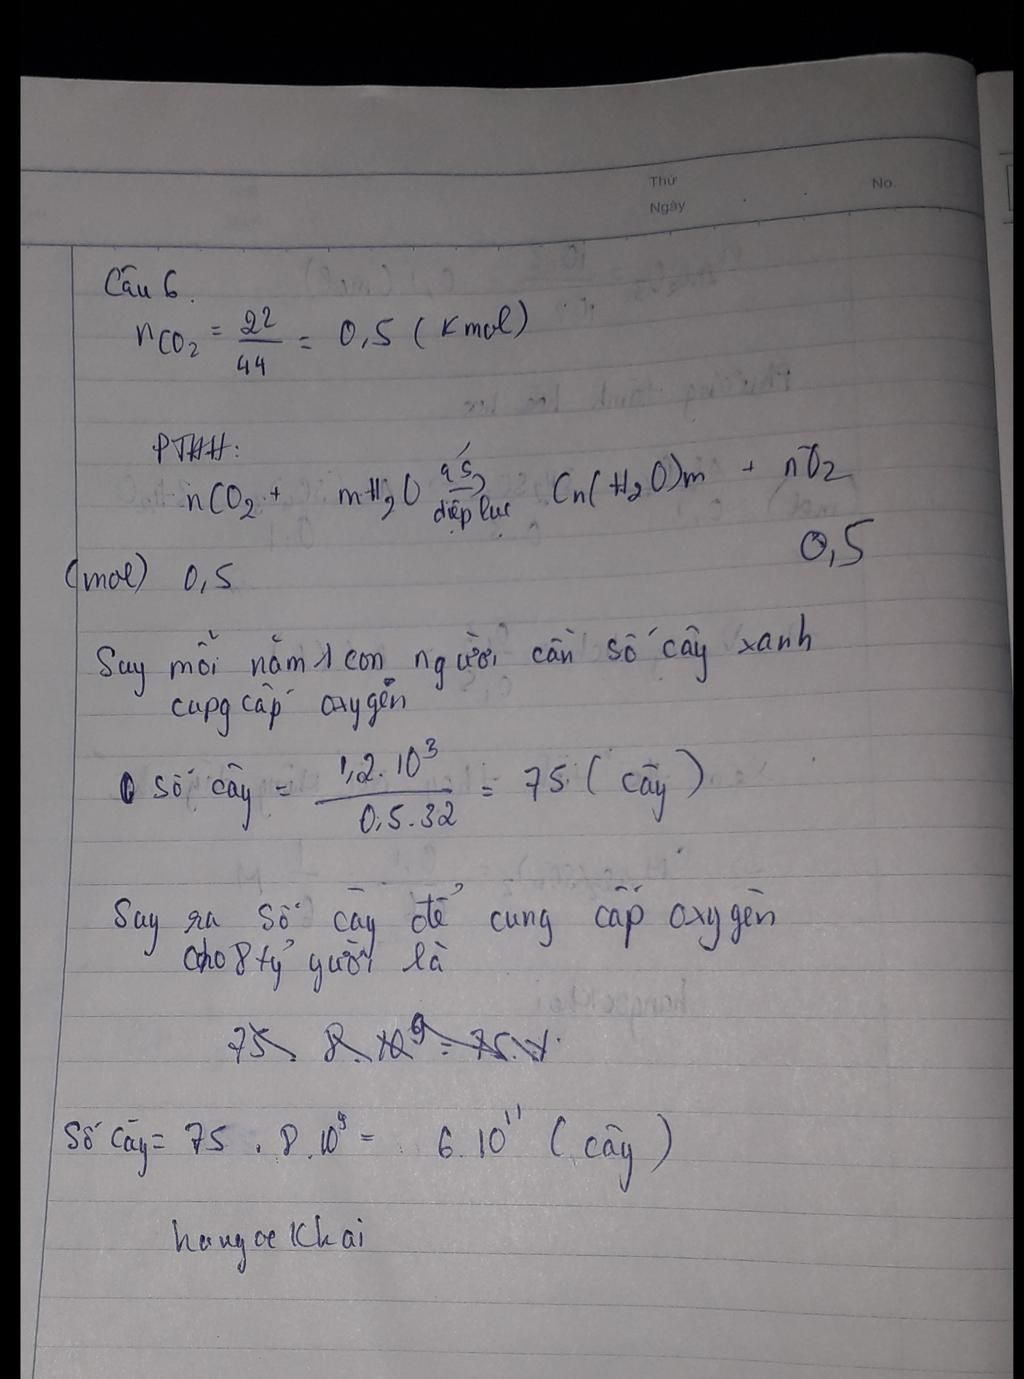 Thứ
Ngày
No.
Câu 6.
nCO2 = 22/44 = 0,5 (Kmol)
PTHH:
nCO2 + mH2O as→ diệp lục Cn(H2O)m + nO2
(mol) 0,5 0,5
Suy mỗi năm 1 con người cần số cây xanh
cung cấp oxygen
Số cây = 1,2.10³/0,5.32 = 75 (cây)
Suy ra số cây để cung cấp oxygen
cho 8 tỷ gười là
Số cây = 75 . 8.10⁹ = 6.10¹¹ (cây)